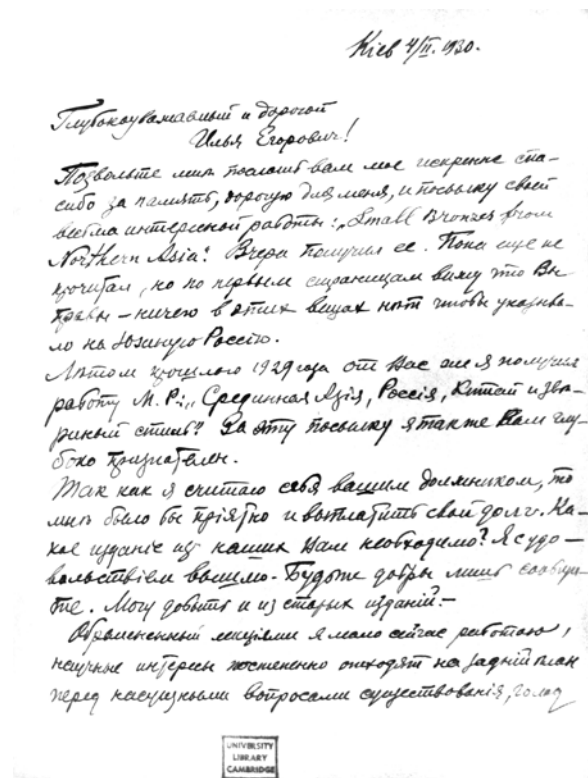 Кіев 4/II. 1930.
Глубокоуважаемый и дорогой
Илья Егорович!
Позвольте мнѣ послать вам мое искренне спа-
сибо за память, дорогую для меня, и посылку своей
весьма интересной работы: „Small Bronzes from
Northern Asia“. Вчера получил ее. Пока еще не
прочитал, но по первым страницам вижу что Вы
правы – ничего в этих вещах нѣт чтобы указыва-
ло на Южную Россію.
Лѣтом прошлого 1929 года от Вас же я получил
работу М. Р.: „Срединная Азія, Россія, Китай и звѣ-
риный стиль“. За эту посылку я также Вам глу-
боко признателен.
Так как я считаю себя вашим должником, то
мнѣ было бы пріятно и выплатить свой долг. Ка-
кое изданіе из наших Вам необходимо? Я с удо-
вольствіем вышлю. Будьте добры лишь сообщи-
те. Могу добыть и из старых изданій. –
Обремененный я мало сейчас работаю,
научные интересы постепенно отходят на задній план
перед насущными вопросами существованія, голод
UNIVERSITY
LIBRARY
CAMBRIDGE